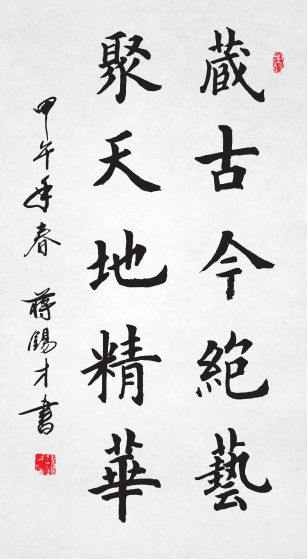 藏古今絕藝
聚天地精華
甲午年春 蔣錫才書